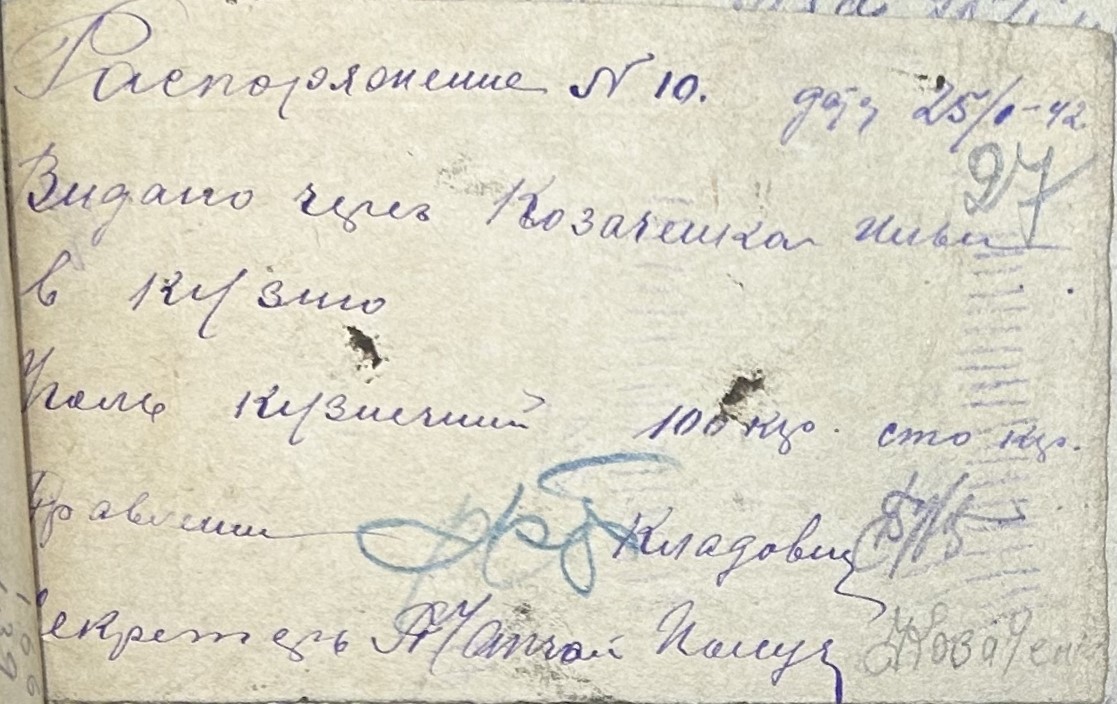 Распоряжение N 10. дата 25/1-42
27
Видано через Козаченка
в Кузню
Уголь кузнечний 100 кгр. сто кгр.
Правлении Кладовщ
Секретарь Получ Козачен